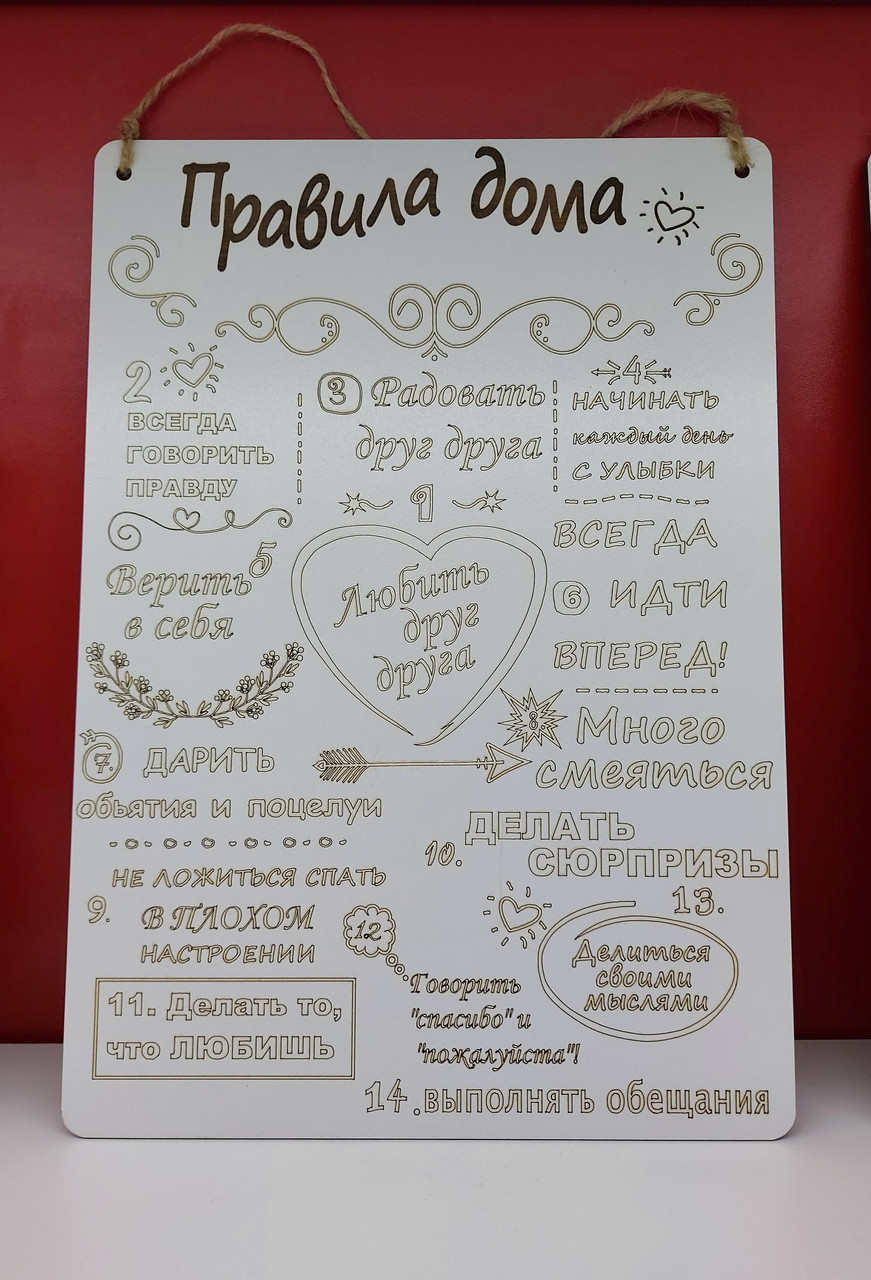 Правила дома
2
ВСЕГДА
ГОВОРИТЬ
ПРАВДУ
3 Радовать
друг друга
4
НАЧИНАТЬ
каждый день
С УЛЫБКИ
1
Любить
друг
друга
5
Верить
в себя
ВСЕГДА
6 ИДТИ
ВПЕРЕД!
7. ДАРИТЬ
обьятия и поцелуи
8. Много
смеяться
9. НЕ ЛОЖИТЬСЯ СПАТЬ
В ПЛОХОМ
НАСТРОЕНИИ
10. ДЕЛАТЬ
СЮРПРИЗЫ
11. Делать то,
что ЛЮБИШЬ
12
Говорить
"спасибо" и
"пожалуйста"!
13.
Делиться
своими
мыслями
14. выполнять обещания